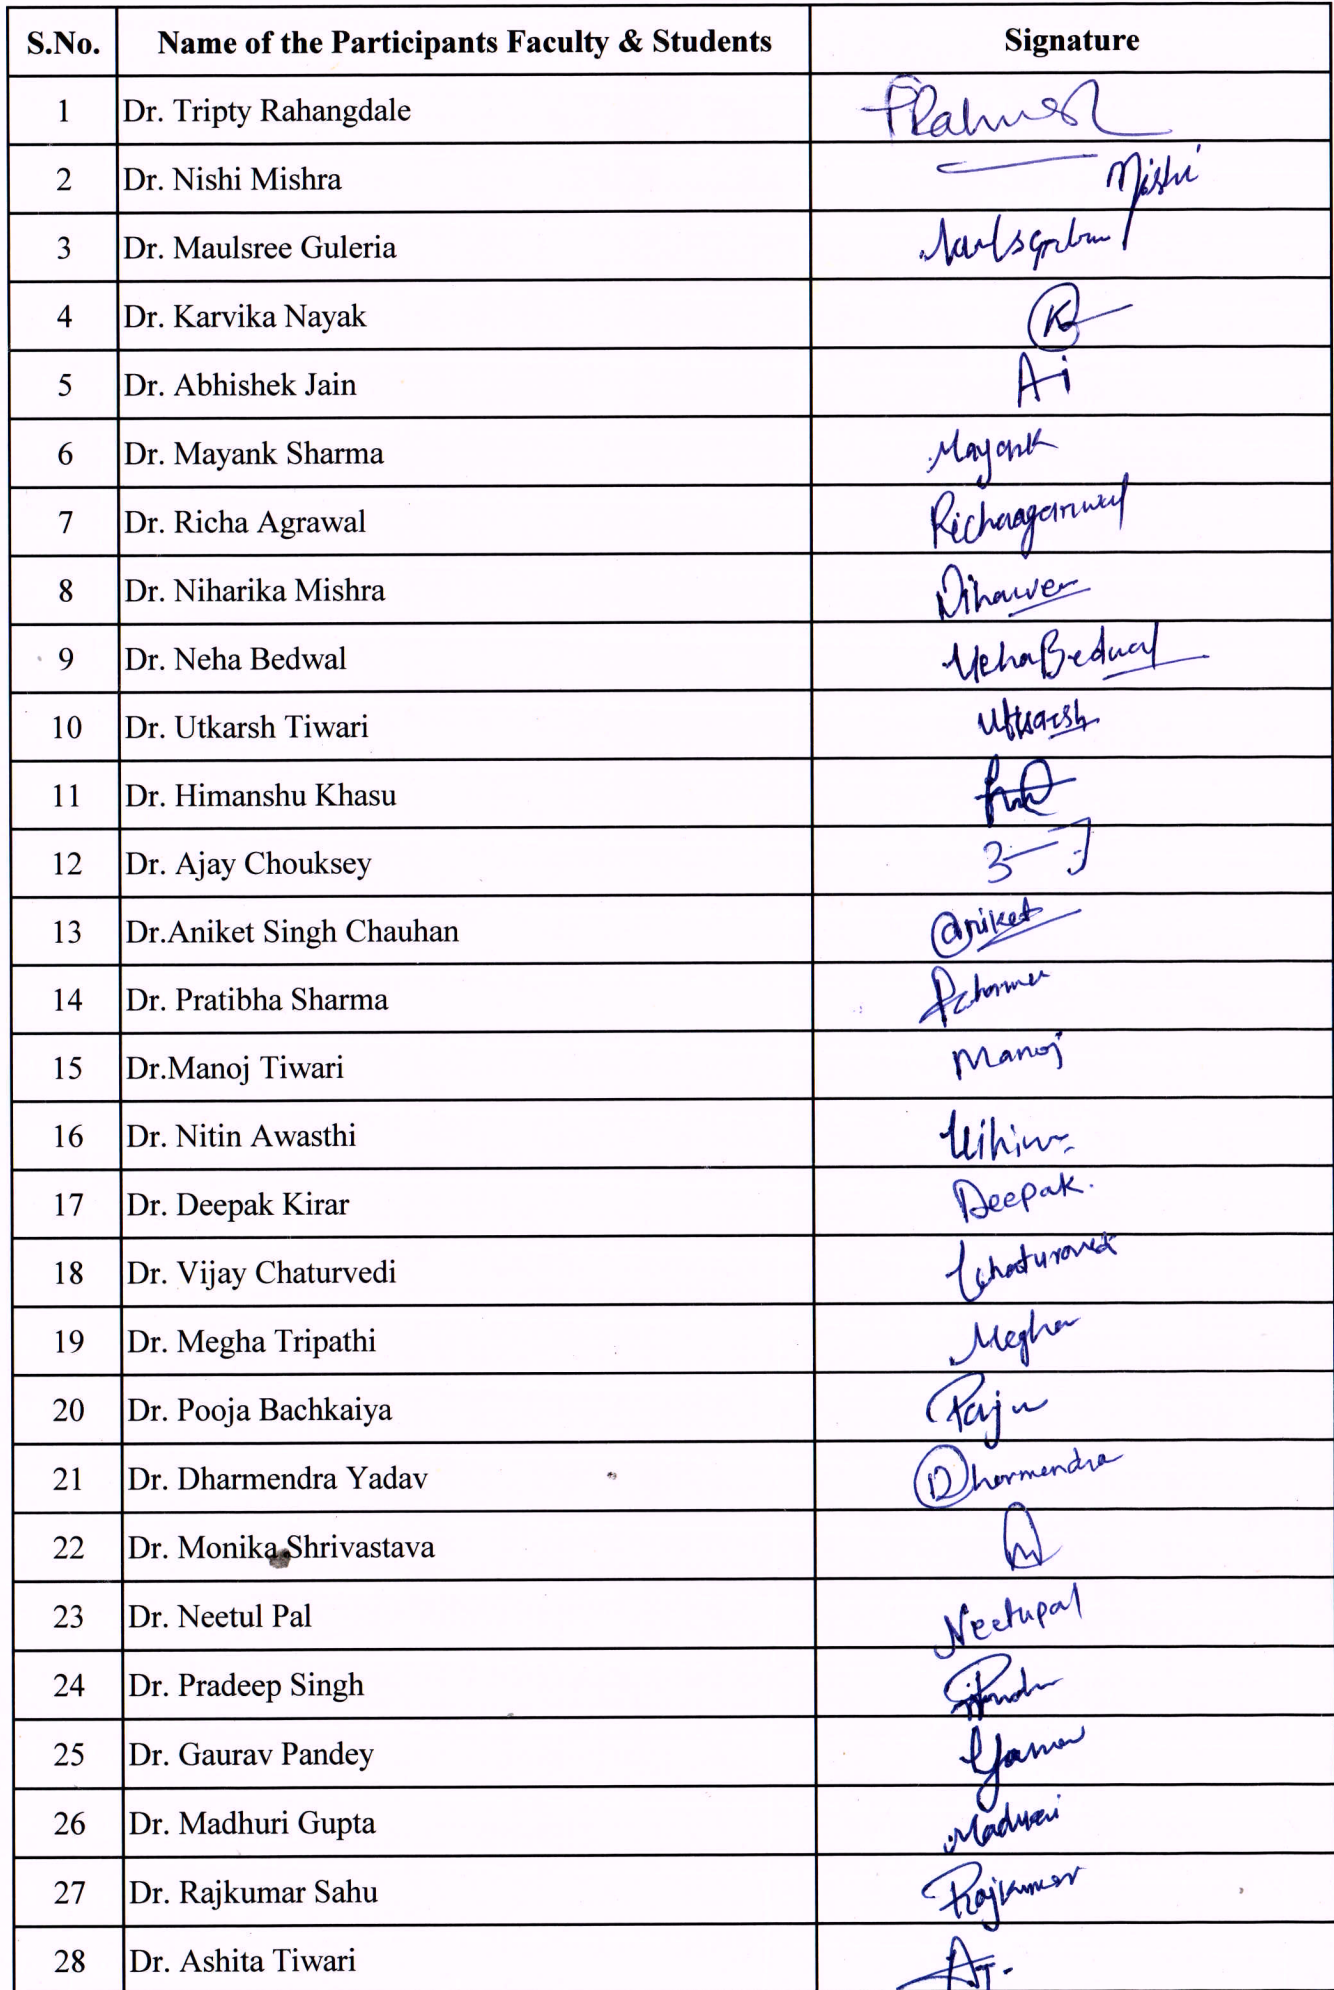 S.No. Name of the Participants Faculty & Students Signature
1 Dr. Tripty Rahangdale
2 Dr. Nishi Mishra Nishi
3 Dr. Maulsree Guleria
4 Dr. Karvika Nayak K
5 Dr. Abhishek Jain
6 Dr. Mayank Sharma Mayank
7 Dr. Richa Agrawal Richaagarwal
8 Dr. Niharika Mishra
9 Dr. Neha Bedwal Neha Bedwal
10 Dr. Utkarsh Tiwari Utkarsh
11 Dr. Himanshu Khasu
12 Dr. Ajay Chouksey
13 Dr.Aniket Singh Chauhan Aniket
14 Dr. Pratibha Sharma
15 Dr.Manoj Tiwari Manoj
16 Dr. Nitin Awasthi
17 Dr. Deepak Kirar Deepak.
18 Dr. Vijay Chaturvedi
19 Dr. Megha Tripathi Megha
20 Dr. Pooja Bachkaiya
21 Dr. Dharmendra Yadav Dharmendra
22 Dr. Monika Shrivastava
23 Dr. Neetul Pal Neetupal
24 Dr. Pradeep Singh
25 Dr. Gaurav Pandey
26 Dr. Madhuri Gupta Madhuri
27 Dr. Rajkumar Sahu Rajkumar
28 Dr. Ashita Tiwari AT.